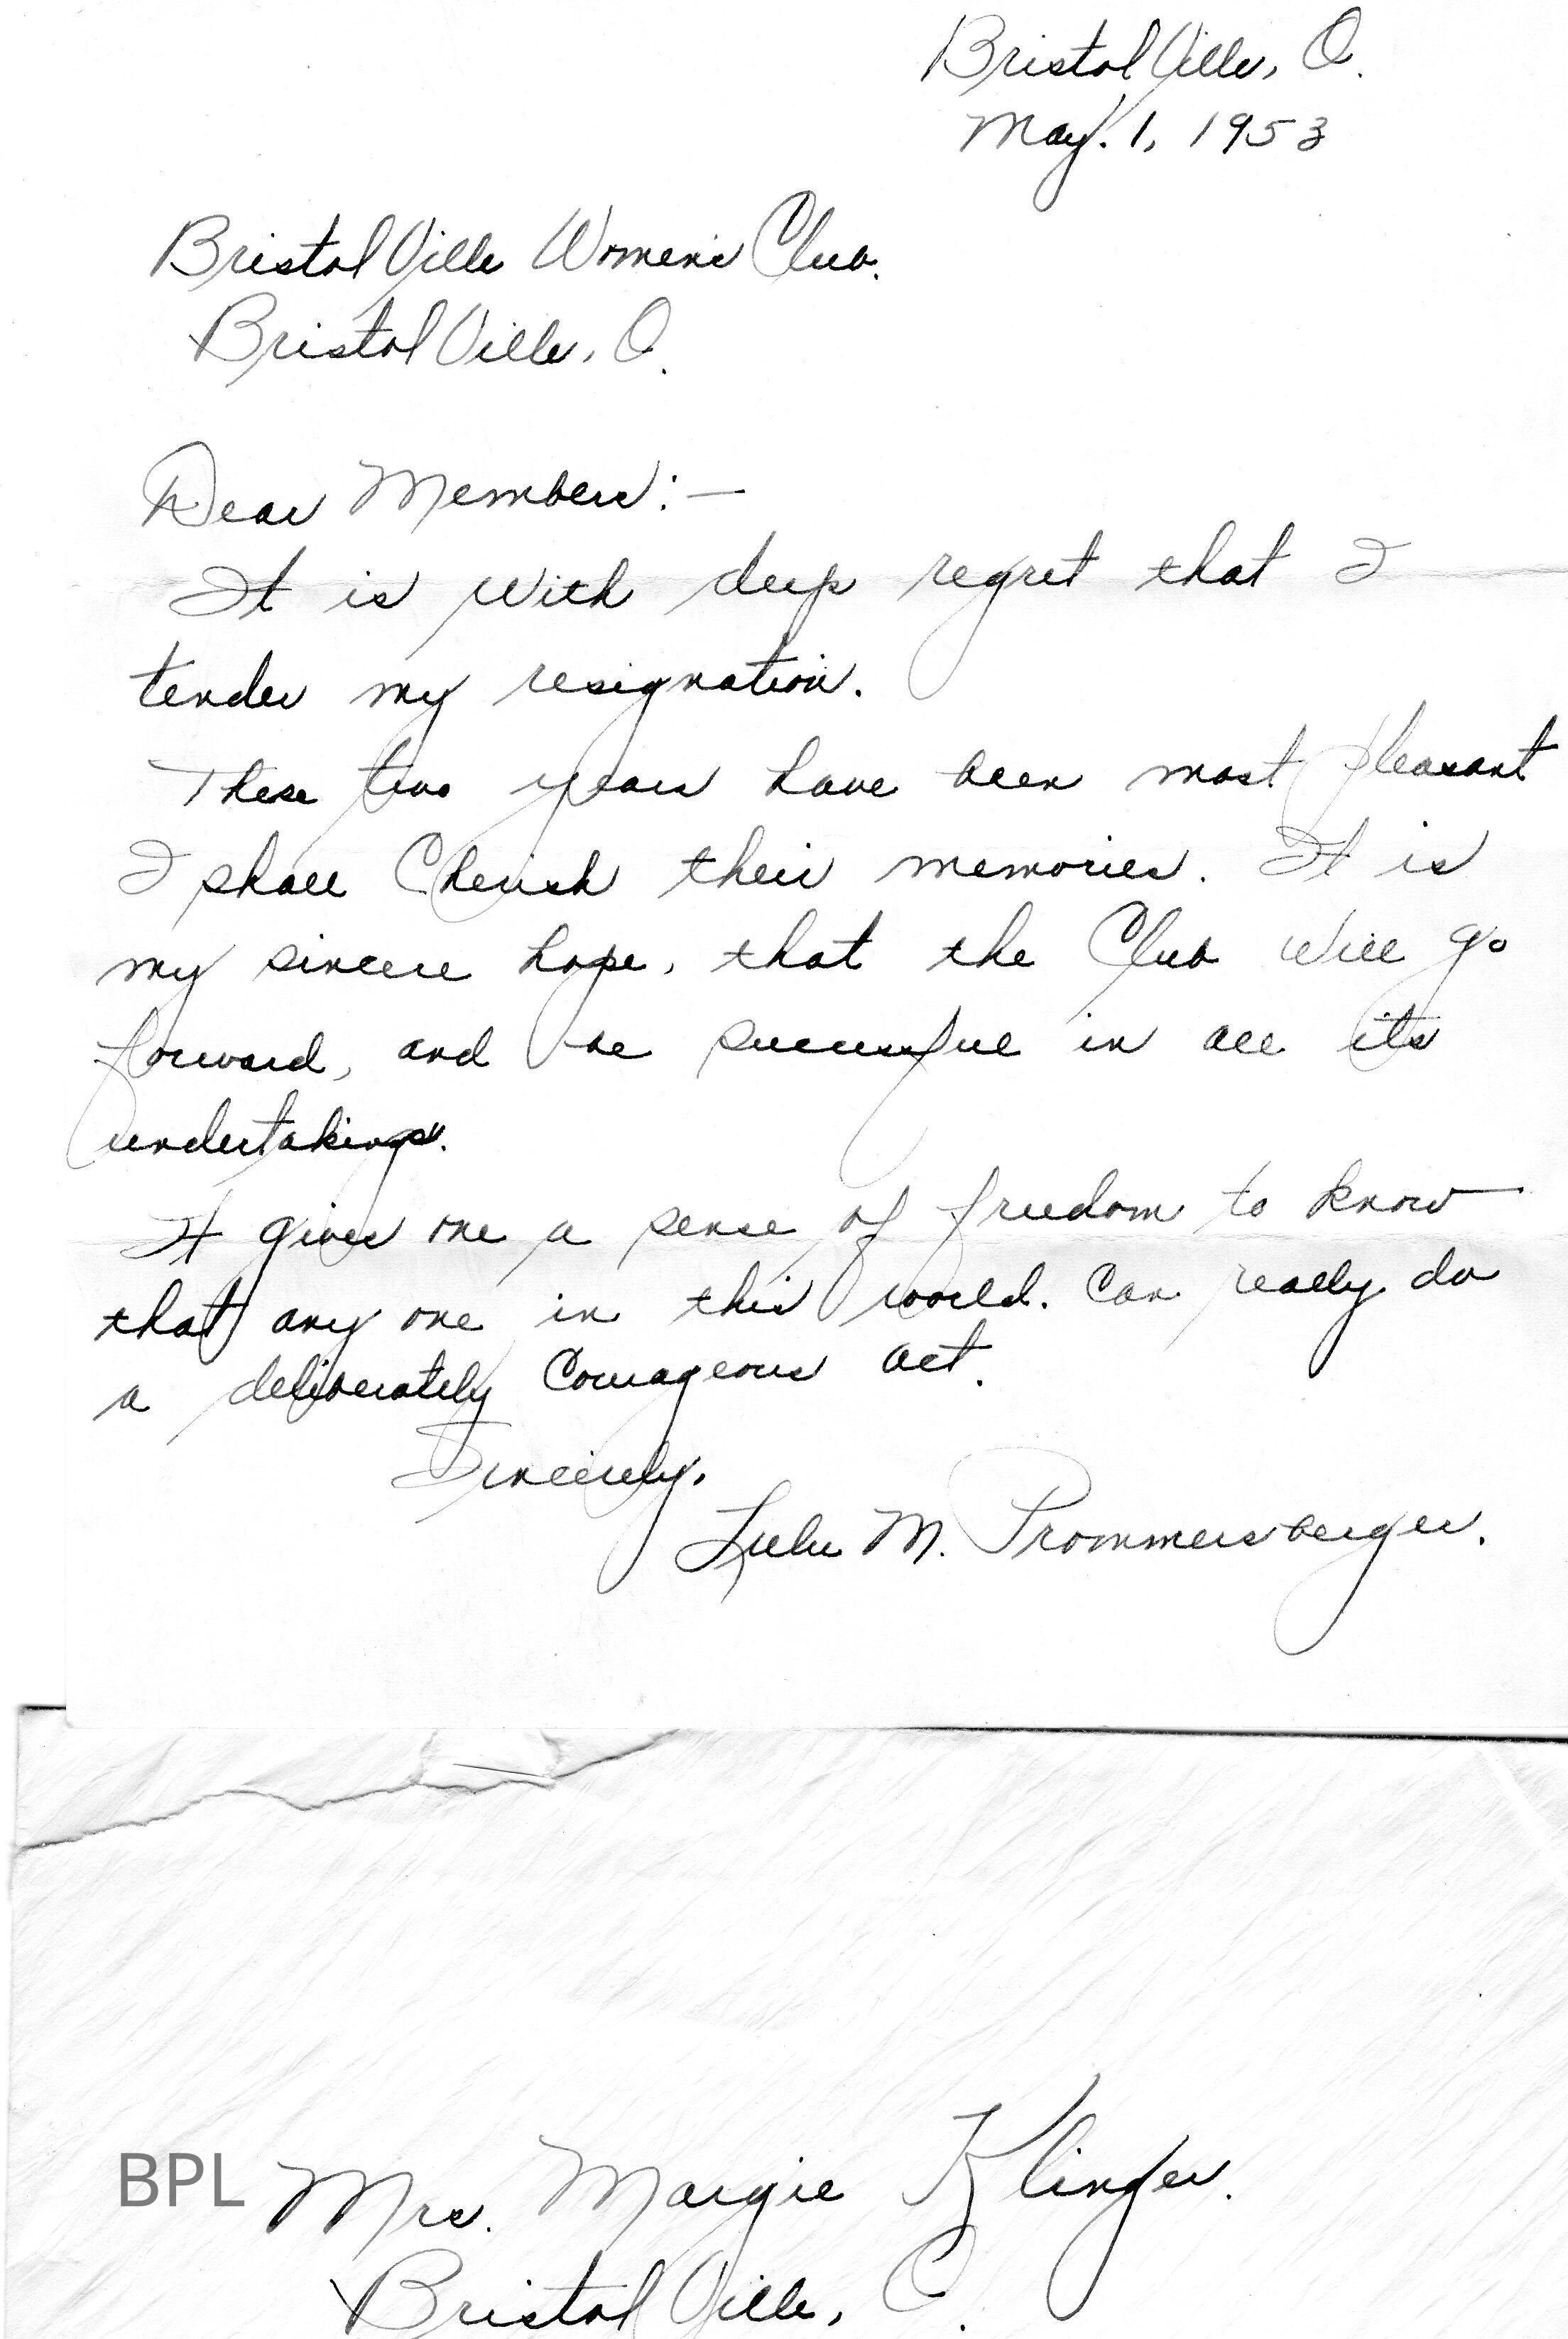 BristolVille, O.
May. 1, 1953
BristolVille Women's Club.
BristolVille, O.
Dear Members:—
It is with deep regret that I
tender my resignation.
These two years have been most pleasant
I shall Cherish their memories. It is
my sincere hope, that the Club will go
forward, and be successful in all its
undertakings.
It gives one a sense of freedom to know
that any one in this world. Can really do
a deliberately Courageous act.
Sincerely,
Lulu M. Prommersberger.
BPL
Mrs. Margie Klinger.
BristolVille, O.